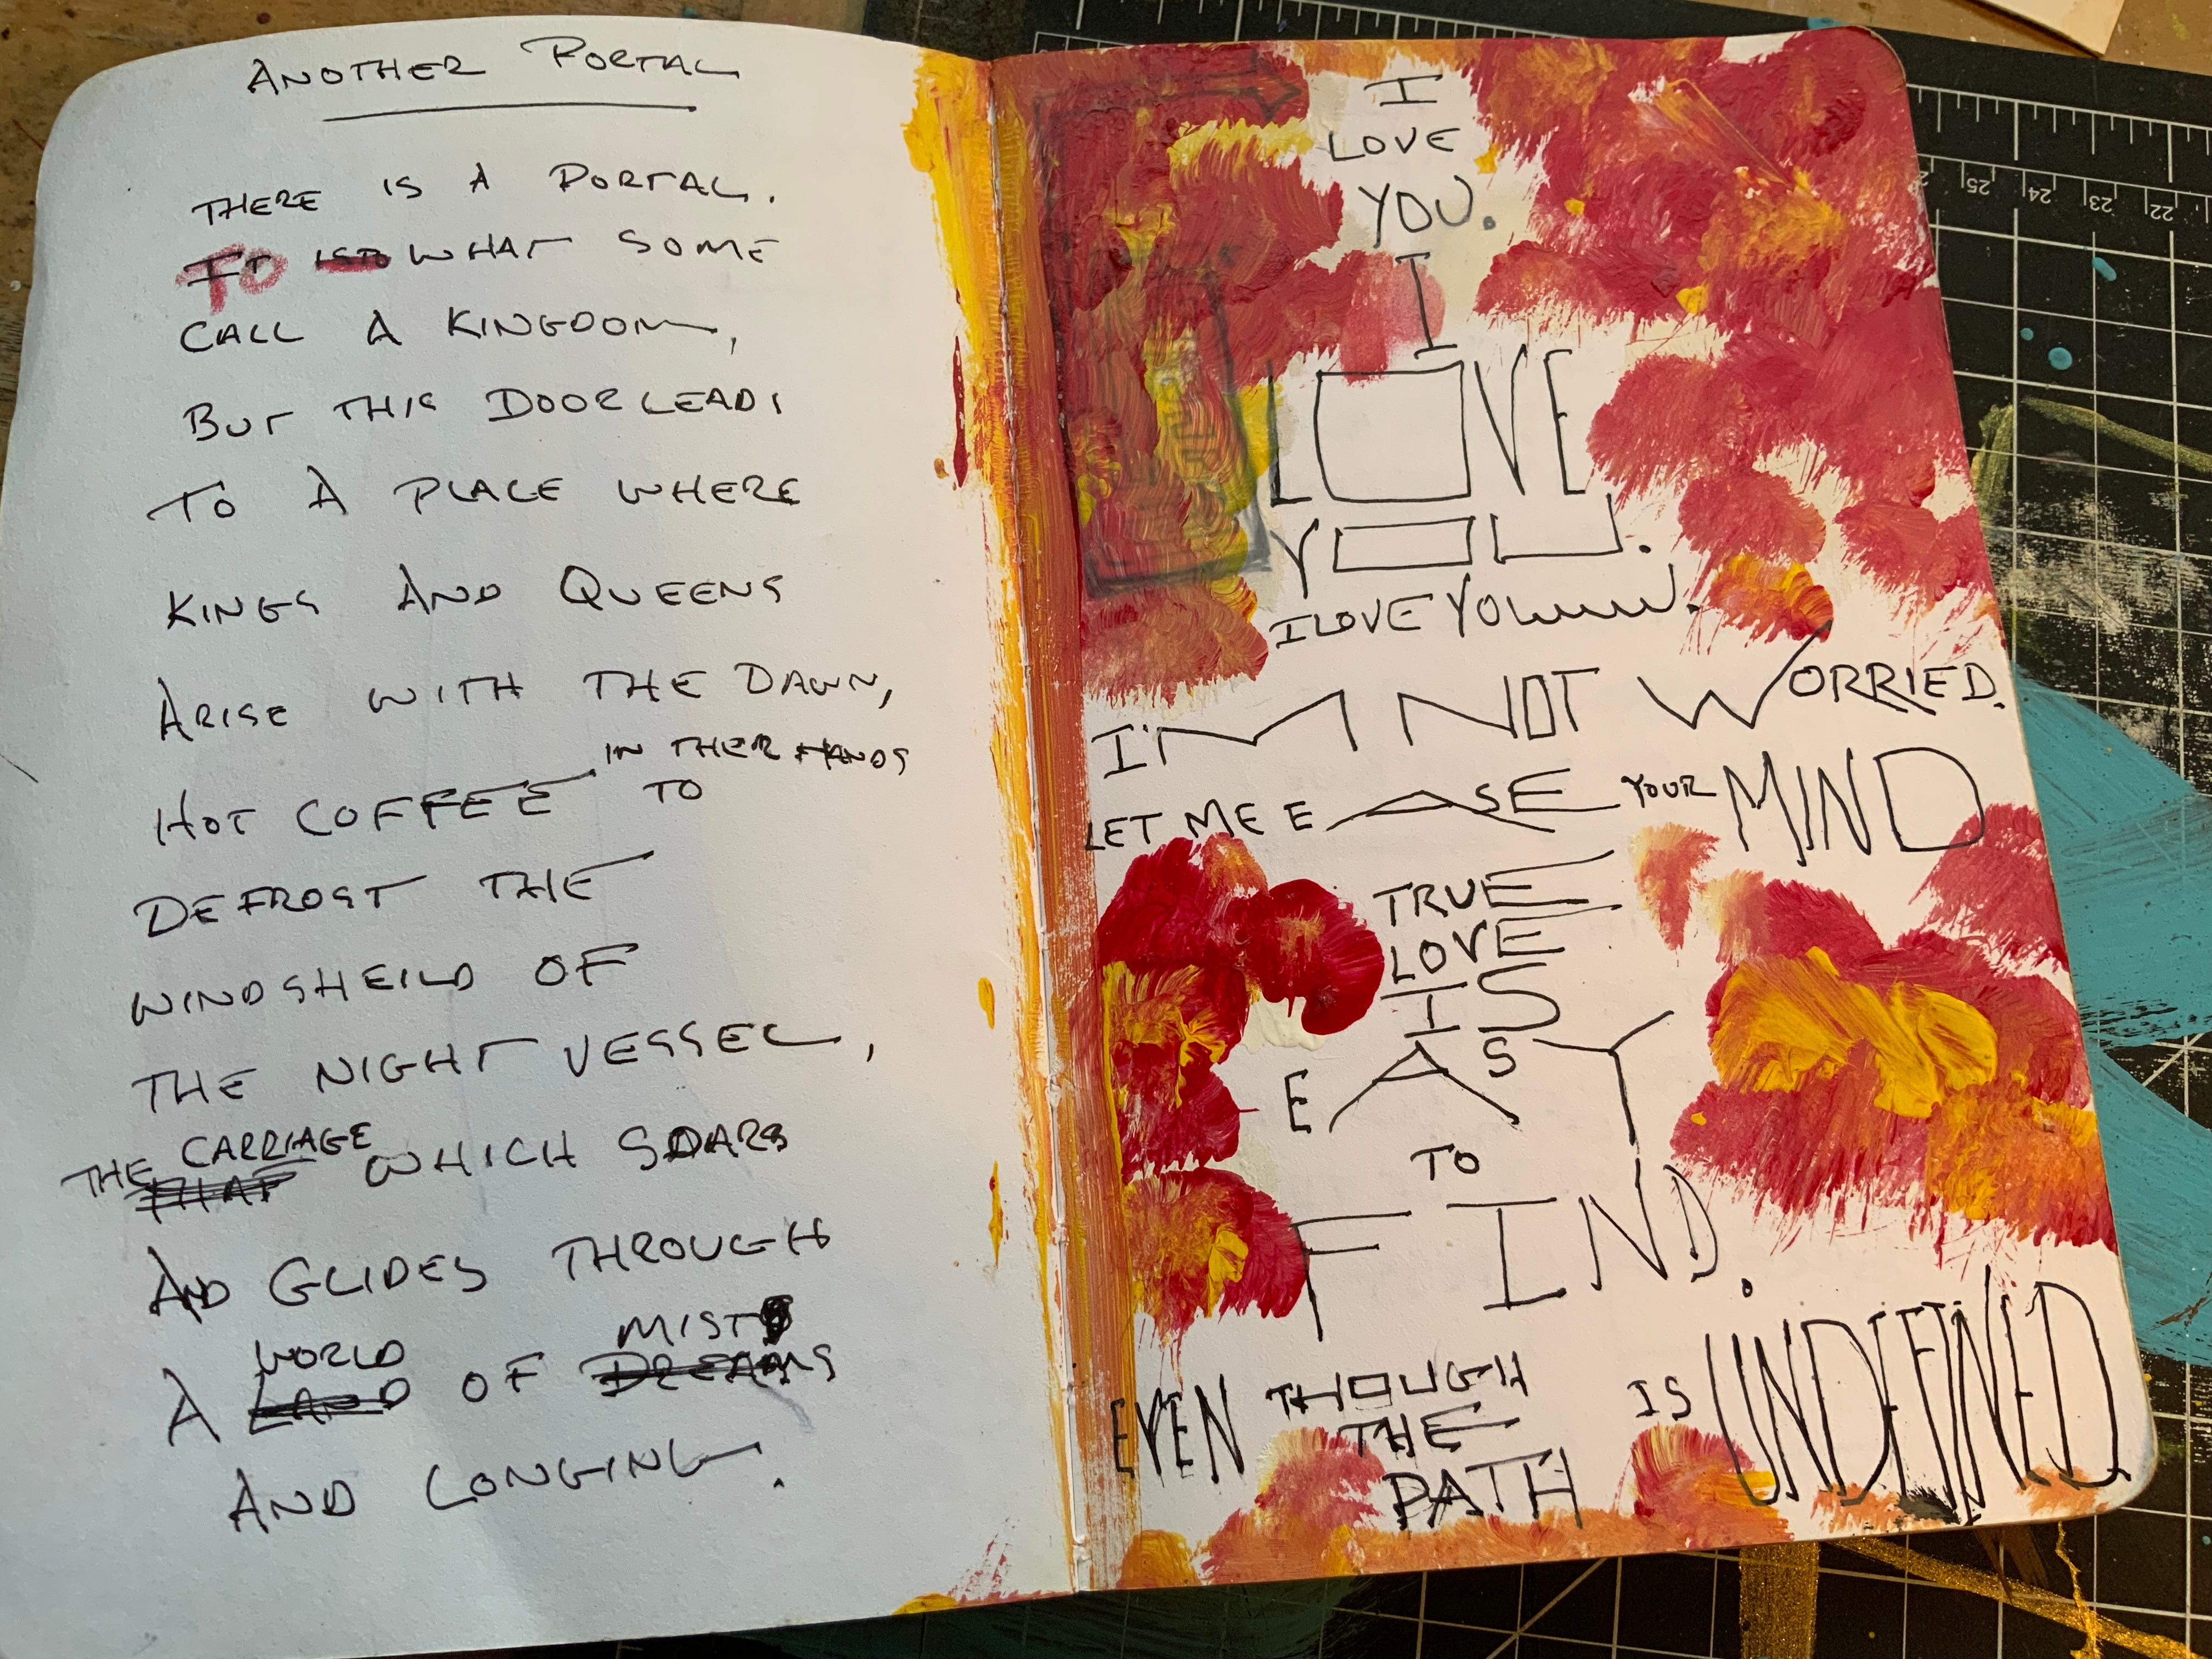 ANOTHER PORTAL
THERE IS A PORTAL.
TO WHAT SOME
CALL A KINGDOM,
BUT THIS DOOR LEADS
TO A PLACE WHERE
KINGS AND QUEENS
ARISE WITH THE DAWN,
IN THER HANDS
HOT COFFEE TO
DEFROST THE
WINDSHEILD OF
THE NIGHT VESSEL,
THE CARRIAGE WHICH SOARS
AND GLIDES THROUGH
A WORLD OF MIST
AND LONGING.
I
LOVE
YOU.
I
LOVE
YOU.
I LOVE YOU.
I'M NOT WORRIED.
LET ME EASE YOUR MIND
TRUE
LOVE
IS
EASY
TO
FIND.
EVEN THOUGH
THE
PATH
IS UNDEFINED
25 24 23 22